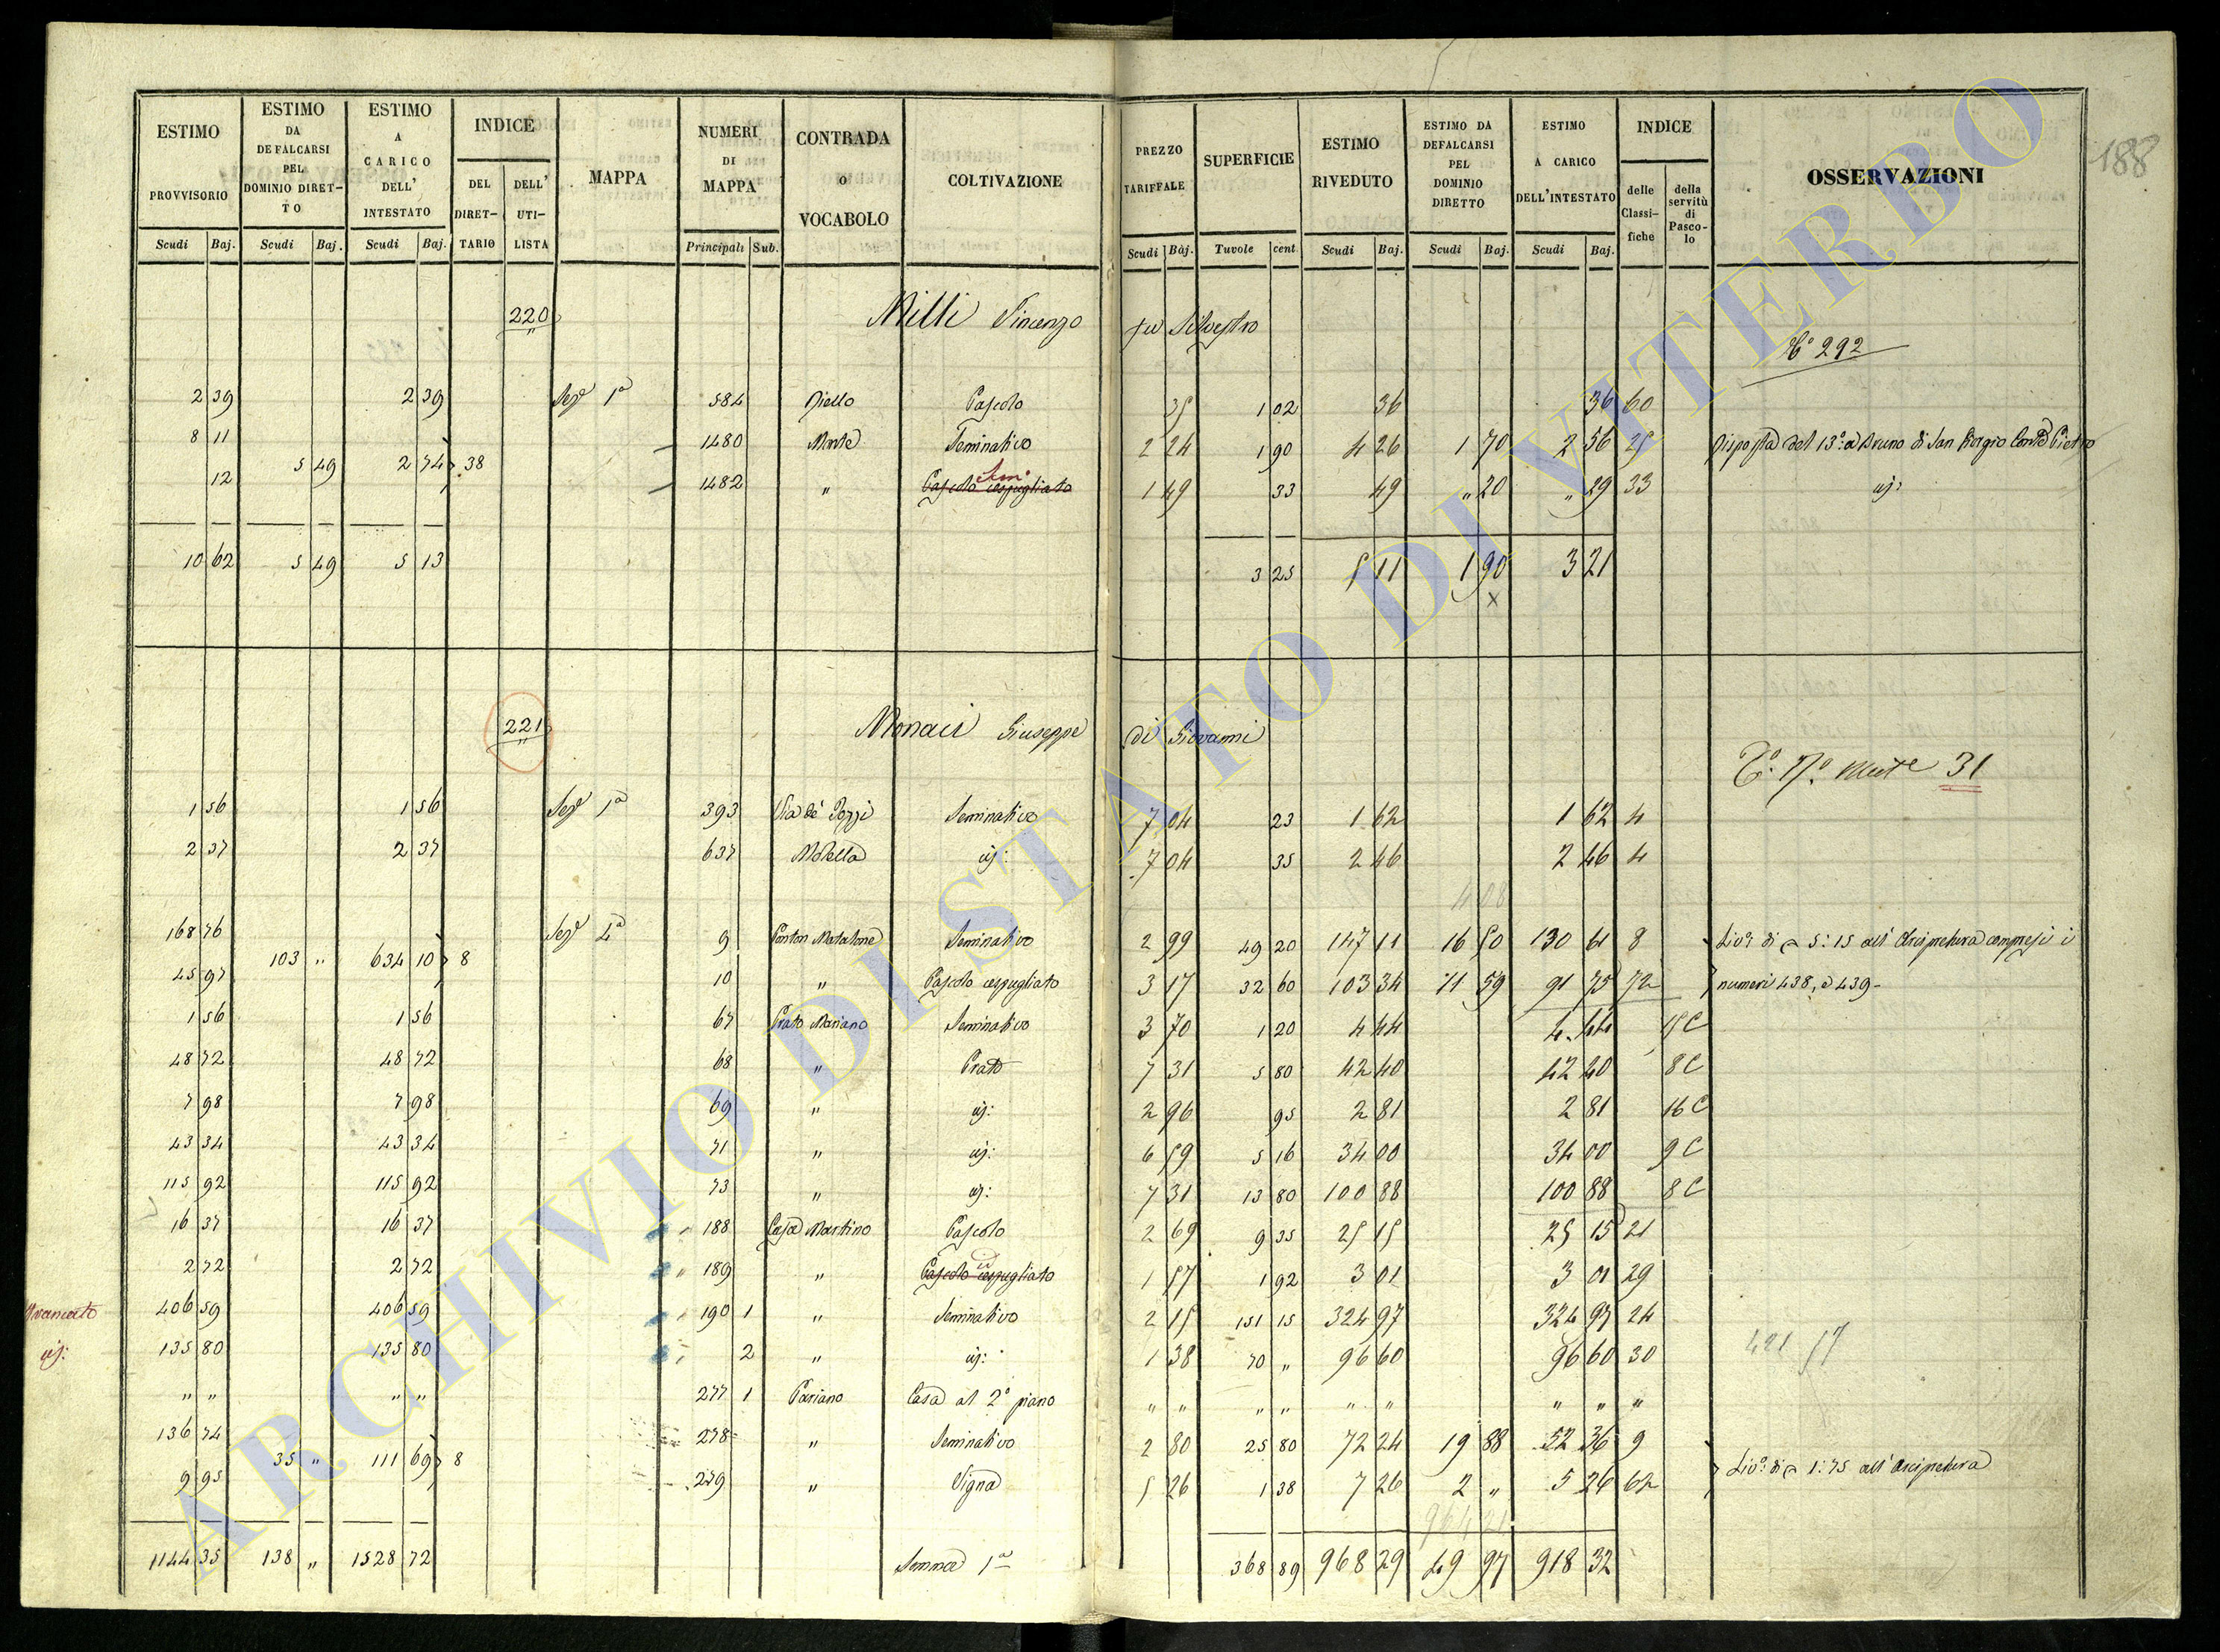 188
ESTIMO PROVVISORIO Scudi Baj.
ESTIMO DA DEFALCARSI PEL DOMINIO DIRET-TO Scudi Baj.
ESTIMO A CARICO DELL' INTESTATO Scudi Baj.
INDICE DEL DIRET-TARIO DELL' UTI-LISTA
MAPPA
NUMERI DI MAPPA Principali Sub.
CONTRADA o VOCABOLO
COLTIVAZIONE
PREZZO TARIFFALE Scudi Baj.
SUPERFICIE Tavole cent
ESTIMO RIVEDUTO Scudi Baj.
ESTIMO DA DEFALCARSI PEL DOMINIO DIRETTO Scudi Baj.
ESTIMO A CARICO DELL'INTESTATO Scudi Baj.
INDICE delle Classi-fiche della servitù di Pasco-lo
OSSERVAZIONI
220 Milli Vincenzo fu Silvestro
292
2 39 2 39 1a 584 Piello Pascolo 35 1 02 36 36 60
8 11 1480 Monte Seminativo 2 24 1 90 4 26 1 70 2 56 25 Risposta del 13: a Bruno di San Giorgio Conte Pietro
5 49 2 74 38
12 1482 " Pascolo cespugliato 1 49 33 49 " 20 " 29 33
10 62 5 49 5 13 3 25 5 11 1 90 3 21
x
221 Monaci Giuseppe di Giovanni
31
1 56 1 56 1a 393 Via de' Pozzi Seminativo 7 04 23 1 62 1 62 4
2 37 2 37 637 Molella 7 04 35 2 46 2 46 4
408
168 76 9 Ponton Matalone Seminativo 2 99 49 20 147 11 16 50 130 61 8 5:15 all' Arcipretura compresi i
103 " 634 10 8
45 97 10 " Pascolo cespugliato 3 17 32 60 103 34 11 59 91 75 72 numeri 438, e 439-
1 56 1 56 67 Prato Mariano Seminativo 3 70 1 20 4 44 4 44 15 C
48 72 48 72 68 " Prato 7 31 5 80 42 40 42 40 8 C
7 98 7 98 69 " 2 96 95 2 81 2 81 16 C
43 34 43 34 71 " 6 59 5 16 34 00 34 00 9 C
115 92 115 92 73 " 7 31 13 80 100 88 100 88 8 C
16 37 16 37 188 Casa Martino Pascolo 2 69 9 35 25 15 25 15 21
2 72 2 72 189 " Pascolo cespugliato 1 57 1 92 3 01 3 01 29
406 59 406 59 190 1 " Seminativo 2 15 151 15 324 97 324 97 24
135 80 135 80 2 " 1 38 70 " 96 60 96 60 30
421 57
" " " " 277 1 Pariano Casa al 2° piano " " " " " " " " "
136 74 278 " Seminativo 2 80 25 80 72 24 19 88 52 36 9
35 " 111 69 8 1:75 all' Arcipretura
9 95 279 " Vigna 5 26 1 38 7 26 2 " 5 26 62
1144 35 138 " 1528 72 Somma 1a 368 89 968 29 49 97 918 32
ARCHIVIO DI STATO DI VITERBO